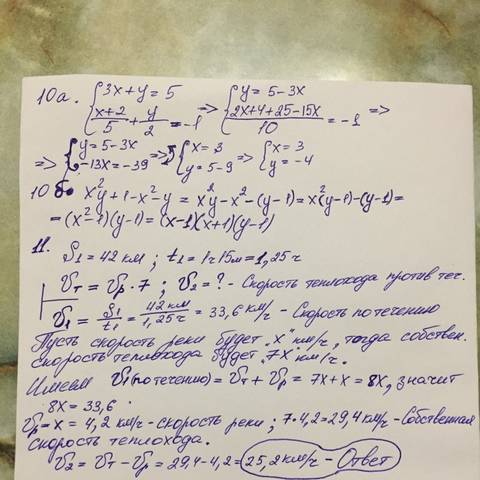 10а. {3x+y=5 => {y=5-3x
{(x+2)/5 + y/2 = -1 {(2x+4+25-15x)/10 = -1 =>
=> {y=5-3x => {x=3 => {x=3
{-13x=-39 {y=5-9 {y=-4
10б. x²y+1-x²-y = x²y-x²-(y-1)=x²(y-1)-(y-1)=
=(x²-1)(y-1)=(x-1)(x+1)(y-1)
11. S₁=42 км ; t₁=1ч15м=1,25ч
Vт = Vр · 7 ; V₂=? - Скорость теплохода против теч.
V₁ = S₁/t₁ = 42 км/1,25ч = 33,6 км/ч - Скорость по течению
Пусть скорость реки будет "x" км/ч, тогда собствен.
скорость теплохода будет "7x" км/ч.
Имеем V₁(по течению) = Vт + Vр = 7x+x = 8x, значит
8x = 33,6
Vр=x = 4,2 км/ч - скорость реки ; 7·4,2=29,4 км/ч - Собственная
скорость теплохода.
V₂ = Vт - Vр = 29,4-4,2 = 25,2 км/ч - Ответ